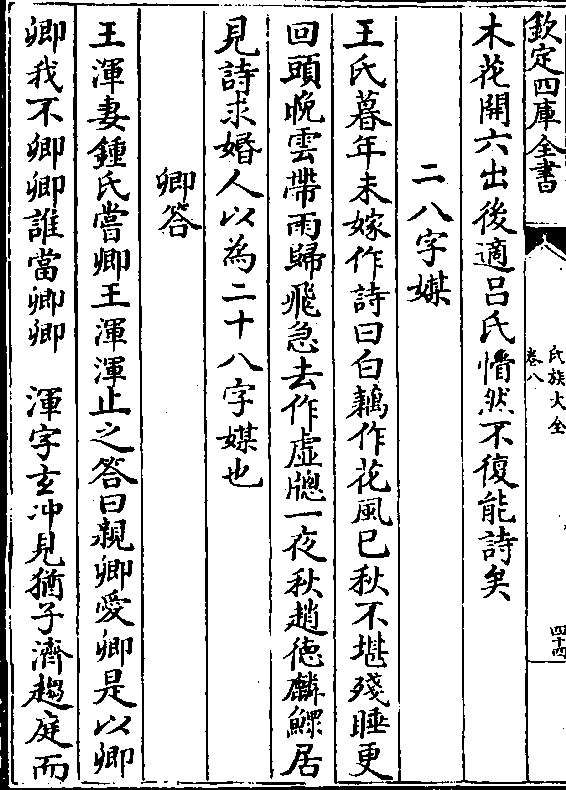 欽定四庫全書
氏族大全
卷八
四十四
木花開六出後適吕氏懵然不復能詩矣
二八字媒
王氏暮年未嫁作詩曰白藕作花風已秋不堪殘睡更
回頭晚雲帶雨歸飛急去作虛牎一夜秋趙徳麟鰥居
見詩求婚人以為二十八字媒也
卿答
王渾妻鍾氏嘗卿王渾渾止之答曰親卿愛卿是以卿
卿我不卿卿誰當卿卿　渾字玄冲見猶子濟趨庭而